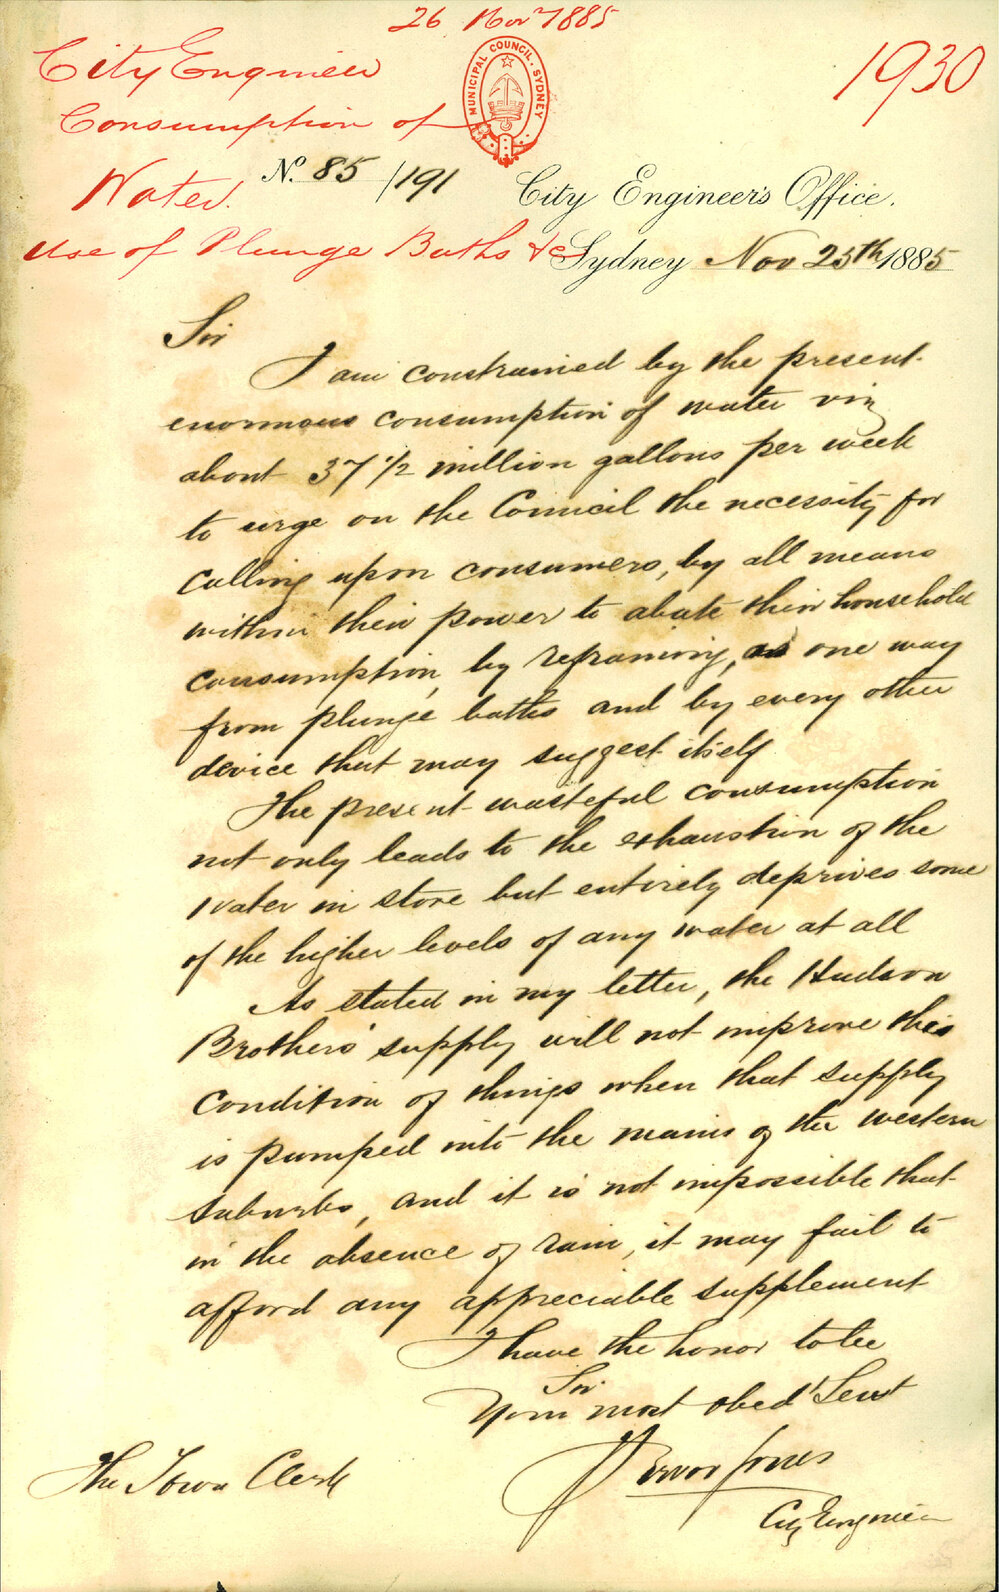 26 Novr 1885
City Engineer
1930
Consumption of
Water.
Use of Plunge Baths &c
MUNICIPAL COUNCIL. SYDNEY
No. 85/191
City Engineer's Office.
Sydney Nov 25th 1885
Sir
I am constrained by the present
enormous consumption of water viz
about 37 1/2 million gallons per week
to urge on the Council the necessity for
calling upon consumers, by all means
within their power to abate their household
consumption, by refraining, as one way
from plunge baths and by every other
device that may suggest itself
The present wasteful consumption
not only leads to the exhaustion of the
water in store but entirely deprives some
of the higher levels of any water at all
As stated in my letter, the Hudson
Brothers' supply will not improve this
condition of things when that supply
is pumped into the mains of the western
suburbs, and it is not impossible that
in the absence of rain, it may fail to
afford any appreciable supplement
I have the honor to be
Sir
Your most obedt Servt
Trevor Jones
City Engineer
The Town Clerk